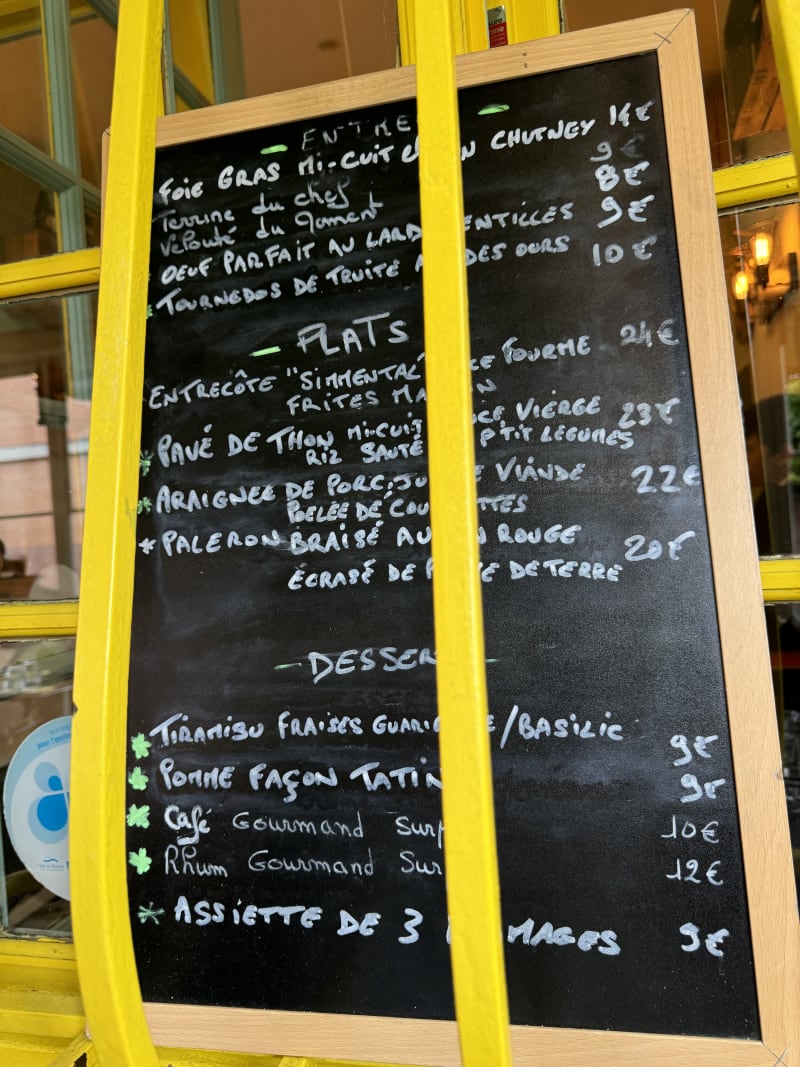 ENTRE
FOIE GRAS MI-CUIT CHUTNEY 14€
Terrine du chef 9€
Velouté du moment 8€
OEUF PARFAIT AU LARD LENTILLES 9€
TOURNEDOS DE TRUITE DES OURS 10€
PLATS
ENTRECÔTE "SIMMENTAL" FOURME 24€
FRITES
PAVÉ DE THON MI-CUIT VIERGE 23€
RIZ SAUTÉ P'TIT LÉGUMES
ARAIGNEE DE PORC, VIANDE 22€
POELEE DE
PALERON BRAISÉ AU ROUGE 20€
ÉCRASÉ DE DE TERRE
DESSER
TIRAMISU FRAISES /BASILIC 9€
POMME FAÇON TATIN 9€
Café Gourmand 10€
Rhum Gourmand 12€
ASSIETTE DE 3 MAGES 9€
pour l'envir